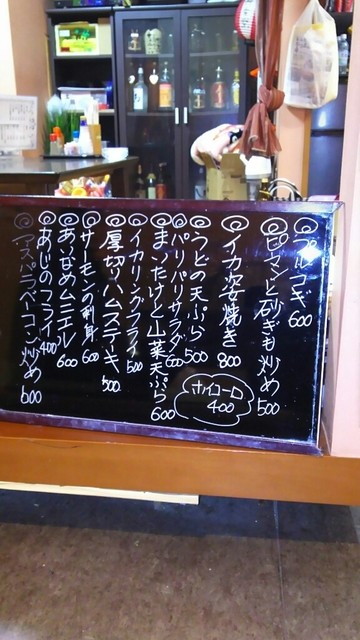 ◎プルコギ 600
◎ピーマンと砂ぎも炒め 500
◎イカ姿焼き 800
◎うどの天ぷら 500
◎パリパリサラダ 600
◎まいたけと山菜天ぷら 600
◎イカリングフライ 500
◎厚切りハムステーキ 500
◎サーモンの刺身 600
◎あいなめムニエル 600
◎あじのフライ 400
◎アスパラベーコン炒め 600
ホイコーロ 400